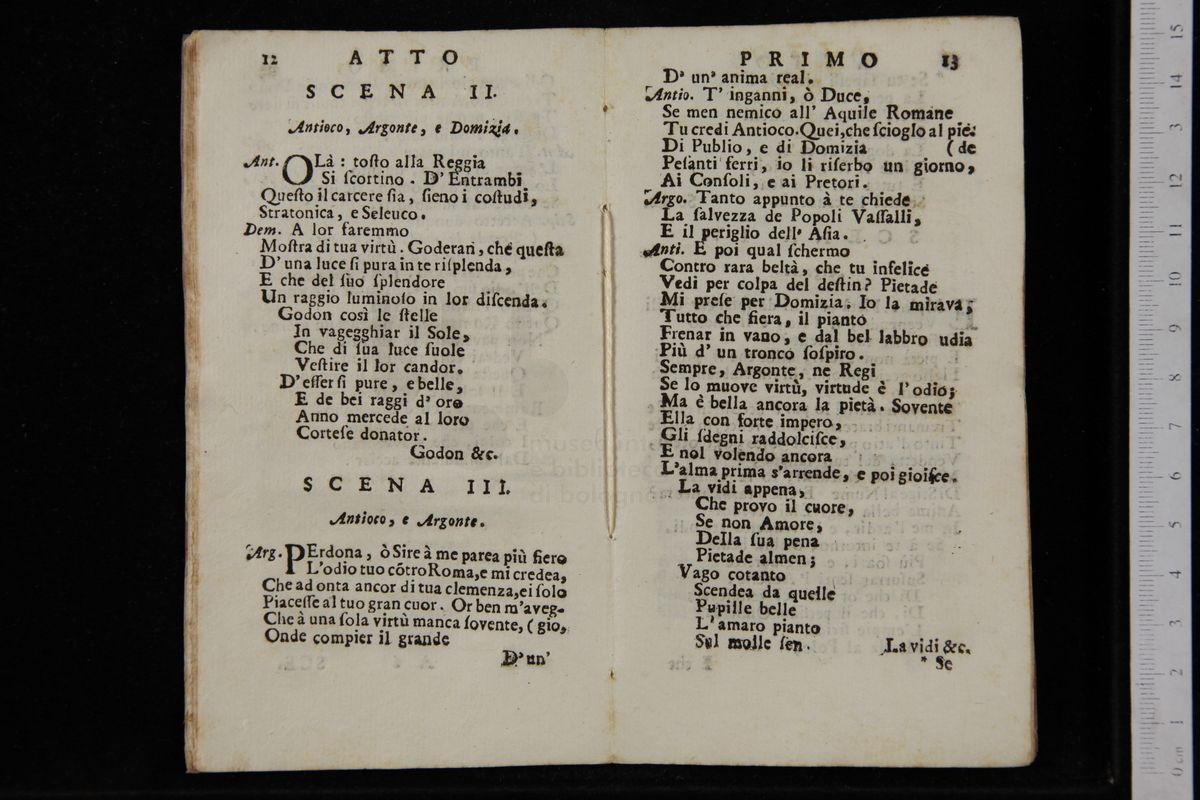 12 ATTO
SCENA II.
Antioco, Argonte, e Domizia.
Ant. OLà : toſto alla Reggia
Si ſcortino . D' Entrambi
Queſto il carcere ſia, ſieno i coſtudi,
Stratonica, e Seleuco.
Dem. A lor faremmo
Moſtra di tua virtù. Goderan, che queſta
D' una luce ſi pura in te riſplenda,
E che del ſuo ſplendore
Un raggio luminoſo in lor diſcenda.
Godon così le ſtelle
In vagegghiar il Sole,
Che di ſua luce ſuole
Veſtire il lor candor.
D'eſſer ſi pure, e belle,
E de bei raggi d' oro
Anno mercede al loro
Corteſe donator.
Godon &c.
SCENA III.
Antioco, e Argonte.
Arg. PErdona, ò Sire à me parea più fiero
L'odio tuo cõtro Roma, e mi credea,
Che ad onta ancor di tua clemenza, ei ſolo
Piaceſſe al tuo gran cuor. Or ben m'aveg-
Che à una ſola virtù manca ſovente, (gio,
Onde compier il grande
D'un'
PRIMO 13
D' un' anima real.
Antio. T' inganni, ò Duce,
Se men nemico all' Aquile Romane
Tu credi Antioco. Quei, che ſcioglo al pie-
Di Publio, e di Domizia (de
Peſanti ferri, io li riſerbo un giorno,
Ai Conſoli, e ai Pretori.
Argo. Tanto appunto à te chiede
La ſalvezza de Popoli Vaſſalli,
E il periglio dell' Aſia.
Anti. E poi qual ſchermo
Contro rara beltà, che tu infelice
Vedi per colpa del deſtin? Pietade
Mi preſe per Domizia. Io la mirava;
Tutto che fiera, il pianto
Frenar in vano, e dal bel labbro udia
Più d' un tronco ſoſpiro.
Sempre, Argonte, ne Regi
Se lo muove virtù, virtude è l'odio;
Ma è bella ancora la pietà. Sovente
Ella con forte impero,
Gli ſdegni raddolciſce,
E nol volendo ancora
L'alma prima s'arrende, e poi gioiſce.
La vidi appena,
Che provo il cuore,
Se non Amore,
Della ſua pena
Pietade almen;
Vago cotanto
Scendea da quelle
Pupille belle
L'amaro pianto
Sul molle ſen. La vidi &c.
* Se